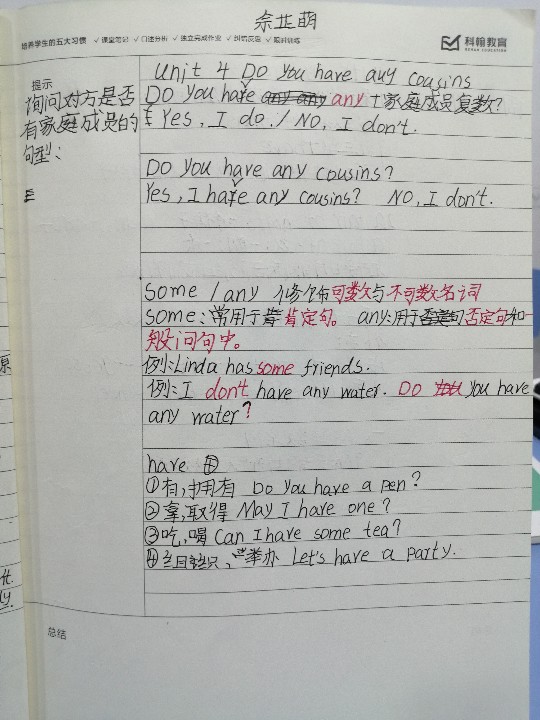 余芷萌
培养学生的五大习惯 ✓课堂笔记 ✓口述分析 ✓独立完成作业 ✓纠错反思 ✓限时训练
科翰教育
提示
询问对方是否
有家庭成员的
句型:
Unit 4 Do you have any cousins
Do you have any + 家庭成员复数?
Yes, I do. / No, I don't.
Do you have any cousins?
Yes, I have any cousins? No, I don't.
some / any 修饰可数与不可数名词
some: 常用于肯定句。 any: 用于否定句和
般问句中。
例:Linda has some friends.
例:I don't have any water. Do you have
any water?
have
①有,拥有 Do you have a pen?
②拿,取得 May I have one?
③吃,喝 Can I have some tea?
④组织、举办 Let's have a party.
总结